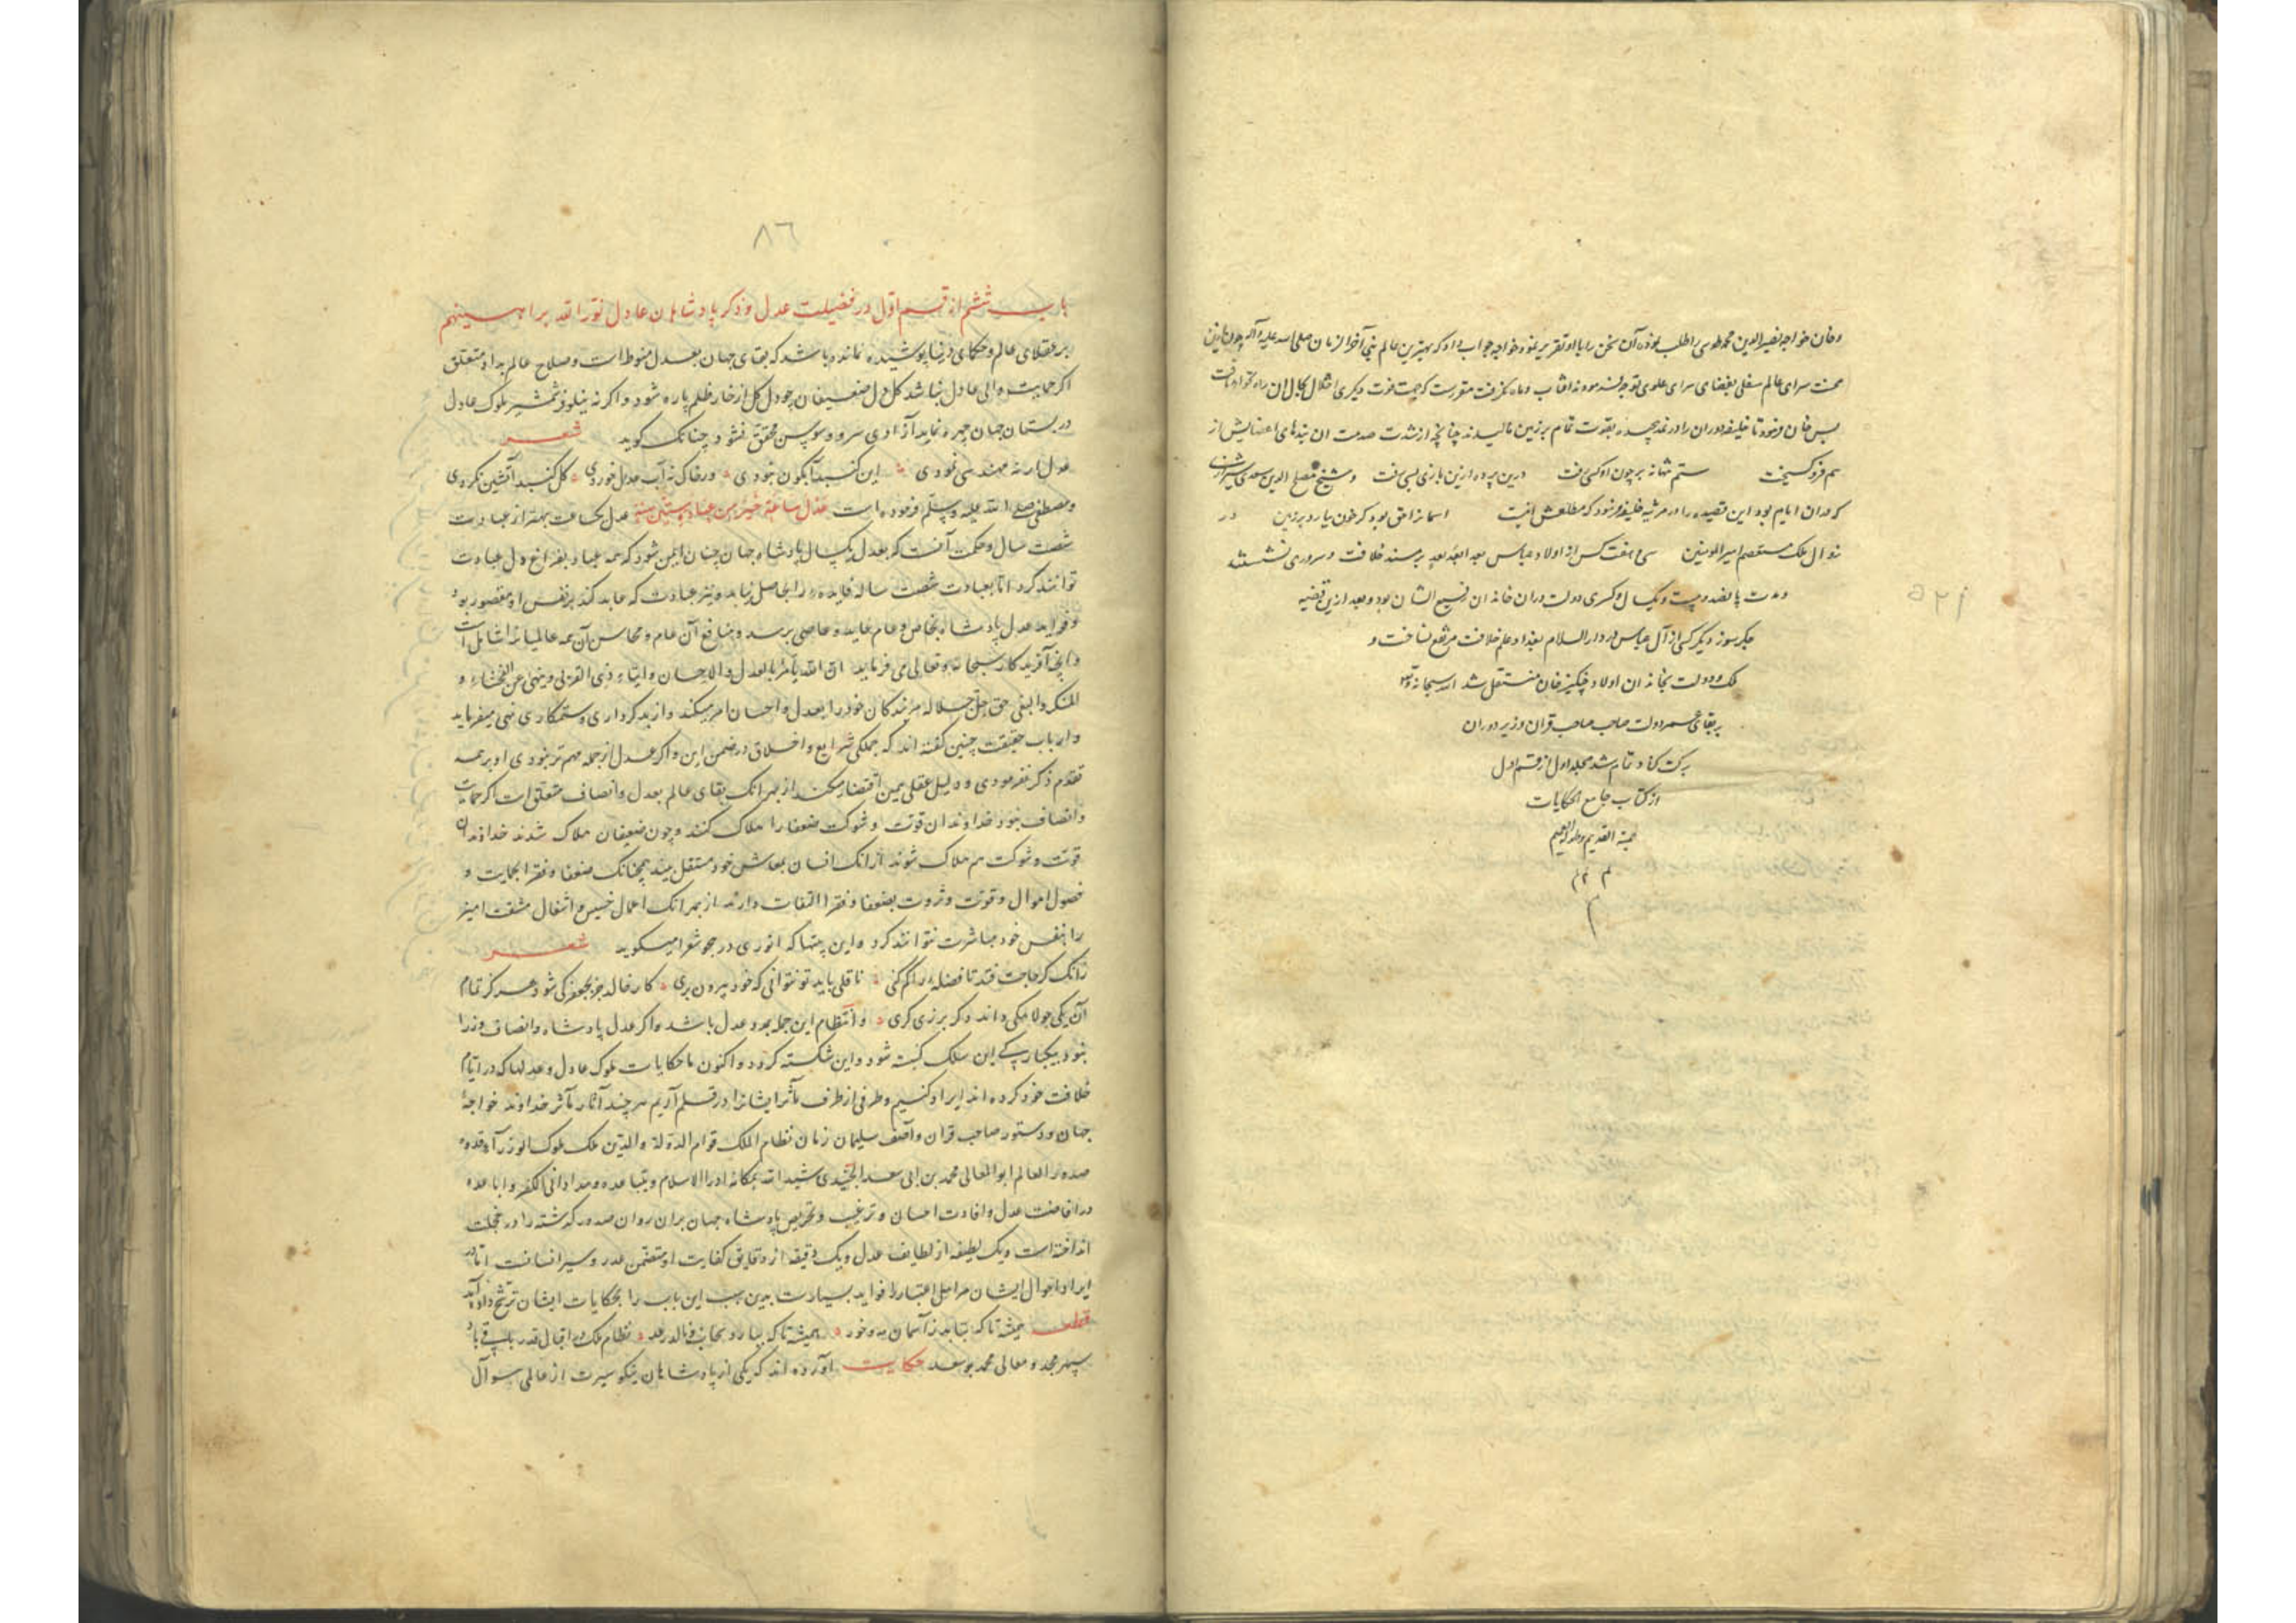 وخان خواجه نصیر الدین محمد طوسی را طلب نموده آن سخن را با او تقریر نمود خواجه جواب داد که بهترین عالم نبی آخر الزمان صلی الله علیه و آله چون ازین
محنت سرای عالم سفلی بفضای سرای علوی توجه نمود نه افتاب و ماه نگرفت
پس خان فرمود تا خلیفه دوران را در نمد پیچیده بقوت تمام بر زمین مالیدند چنانچه از شدت صدمت ان بندهای اعضایش از
هم فرو گسیخت ستم نهانه بر چون او کسی رفت درین پرده ازین بازی بسی رفت و شیخ مصلح الدین سعدی شیرازی
که در ان ایام بود این قصیده را در مرثیه خلیفه فرمود که مطلعش اینست اسمانرا حق بود گر خون ببارد بر زمین در
زوال ملک مستعصم امیر المومنین سی و هفت کس از اولاد عباس بعد ابعد بعد بر مسند خلافت و سروری نشستند
و مدت پانصد و بیست و یکسال و کسری دولت دران خاندان رفیع الشان بود و بعد ازین قضیه
جگرسوز دیگر کسی از آل عباس در دار السلام بغداد علم خلافت مرتفع نساخت و
ملک و دولت بخاندان اولاد چنگیز خان منتقل شد الله سبحانه و تعالی
بر بقای عمر و دولت صاحب صاحب قران وزیر دوران
برکت کناد تمام شد مجلد اول از قسم اول
از کتاب جامع الحکایات
بمنه القدیم و طوله العمیم
م م م
م
۵۲۱
۸٦
باب ششم از قسم اول در فضیلت عدل و ذکر پادشاهان عادل نور الله براهینهم
بر عقلای عالم و حکمای دنیا پوشیده نماند و باشد که بقای جهان بعدل منوط است و صلاح عالم بداد متعلق
اگر حمایت والی عادل نباشد گل دل ضعیفان چو دل گل از خار ظلم پاره شود و اگر نه نیلوفر شمشیر ملوک عادل
در بستان جهان چهره نماید آزادی سرو و سوسن محقق نشود چنانک گوید شعر
عدل ار نه مهندسی نمودی این گنبد آبگون نبودی ور خاک نه آب عدل خوردی گل گنبد آتشین نکردی
و مصطفی صلی الله علیه و سلم فرموده است عدل ساعة خیر من عبادة ستین سنة عدل یکساعت بهتر از عبادت
شصت سال و حکمت آنست که بعدل یکسال پادشاه جهان چنان ایمن شود که همه عباد بفراغ دل عبادت
توانند کرد اما بعبادت شصت ساله فایده را بحاصل نیاید و نیز عبادت که عابد کند بر نفس او مقصور بود
و فواید عدل پادشاه بخاص و عام عاید و عاصی برسد و منافع آن عام و محاسن آن همه عالمیان را شامل است
و آنچه آفریدگار سبحانه و تعالی می فرماید ان الله یأمر بالعدل والاحسان وایتاء ذی القربی وینهی عن الفحشاء و
المنکر والبغی حق جل جلاله مر بندگان خود را بعدل و احسان امر میکند و از بدکرداری و ستمکاری نهی میفرماید
و ارباب حقیقت چنین گفته اند که جملگی شرایع و اخلاق در ضمن این و اگر عدل از جمله مهم تر نبودی او بر همه
تقدم ذکر نفرمودی و دلیل عقلی همین اقتضا میکند از بهر انک بقای عالم بعدل و انصاف متعلق است اگر حمایت
و انصاف نبود خداوندان قوت و شوکت ضعفا را هلاک کنند و چون ضعیفان هلاک شدند خداوندان
قوت و شوکت هم هلاک شوند از انک انسان بمعاش خود مستقل نیند همچنانک ضعفا و فقرا بحمایت و
فضول اموال و قوت و ثروت بضعفا و فقرا التفات دارند از بهر انک اعمال خسیس و اشغال مشقت امیز
را بنفس خود مباشرت نتوانند کرد و این بیتها که انوری در هجو شعرا میگوید شعر
زانک گر حاجت فتد تا فضله را گم کنی ناقلی باید تو نتوانی که خود بیرون بری کار خالد جز بجعفر کی شود هرگز تمام
آن یکی جولاهگی داند دگر برزی گری و انتظام این جمله بمدد عدل باشد و اگر عدل پادشاه و انصاف وزرا
نبود بیکبارگی این سلک گسسته شود و این شکسته گردد و اکنون ما حکایات ملوک عادل و عدلها که در ایام
خلافت خود کرده اند ایراد کنیم و طرفی از طرف مآثر ایشانرا در قلم آریم هر چند آثار مآثر خداوند خواجهٔ
جهان دستور صاحب قران و آصف سلیمان زمان نظام الملک قوام الدولة والدین ملک ملوک الوزرآء قدوه
صدور العالم ابو المعالی محمد بن ابی سعد الجنیدی
در افاضت عدل و افادت احسان و ترغیب و تحریض پادشاه جهان بران روان صدور گذشته را در خجلت
انداخته است و یک لطیفه از لطایف عدل و یک دقیقه از دقایق کفایت او متضمن اما در
ایراد احوال ایشان مر اهل اعتبار را فواید بسیارست بدین سبب این باب را بحکایات ایشان ترشیح داده آید
قطعه همیشه تا که بتابد ز آسمان مه و خور همیشه تا که ببارد سحاب و نالد رعد نظام ملک و اقبال قدر باقی باد
سپهر مجد و معالی محمد بو سعد حکایت آورده اند که یکی از پادشاهان نیکو سیرت از عالمی سوال